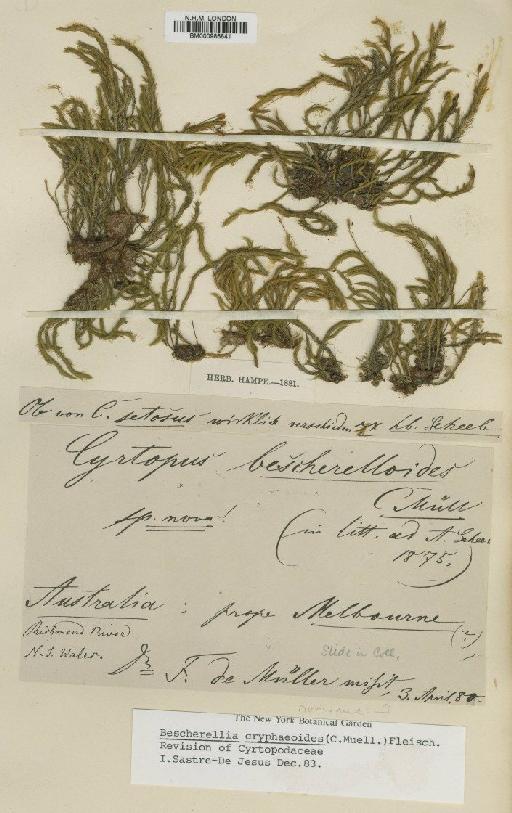 N.H.M. LONDON
HERB. HAMPE.—1881.
Ob von C. setosus wirklich hb. Geheeb.
Cyrtopus bescherelloides
C Müll
sp. nova!
(in litt. ad A. Geheeb
1875.)
Australia: prope Melbourne (?)
Richmond River
N. S. Wales.
Slide in Coll.
F. de Müller misit, 3. April, 80.
The New York Botanical Garden
Bescherellia cryphaeoides(C.Muell.)Fleisch.
Revision of Cyrtopodaceae
I.Sastre-De Jesus Dec.83.